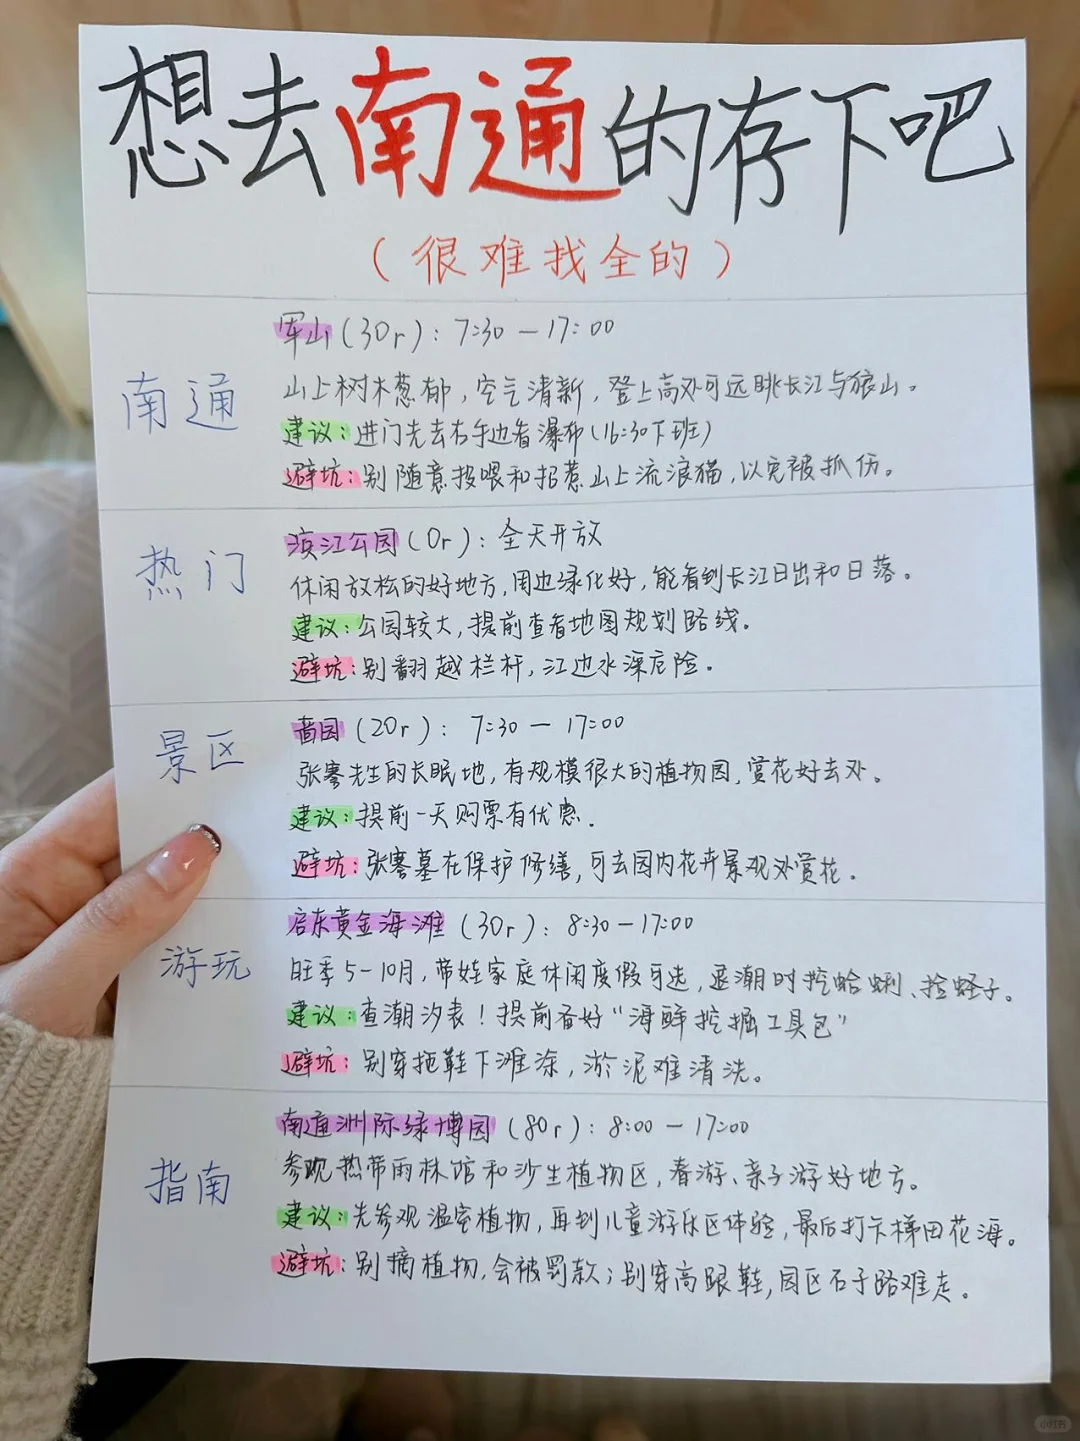 想去南通的存下吧
（很难找全的）
南通
军山（30r）：7:30—17:00
山上树木葱郁，空气清新，登上高处可远眺长江与狼山。
建议：进门先去右手边看瀑布（16:30下班）
避坑：别随意投喂和招惹山上流浪猫，以免被抓伤。
热门
滨江公园（0r）：全天开放
休闲放松的好地方，周边绿化好，能看到长江日出和日落。
建议：公园较大，提前查看地图规划路线。
避坑：别翻越栏杆，江边水深危险。
景区
啬园（20r）：7:30—17:00
张謇先生的长眠地，有规模很大的植物园，赏花好去处。
建议：提前一天购票有优惠.
避坑：张謇墓在保护修缮，可去园内花卉景观处赏花。
游玩
启东黄金海滩（30r）：8:30—17:00
旺季5-10月，带娃家庭休闲度假可选，退潮时挖蛤蜊、捡蛏子。
建议：查潮汐表！提前备好“海鲜挖掘工具包”
避坑：别穿拖鞋下滩涂，淤泥难清洗。
指南
南通洲际绿博园（80r）：8:00—17:00
参观热带雨林馆和沙生植物区，春游、亲子游好地方。
建议：先参观温室植物，再到儿童游乐区体验，最后打卡梯田花海。
避坑：别摘植物，会被罚款；别穿高跟鞋，园区石子路难走。